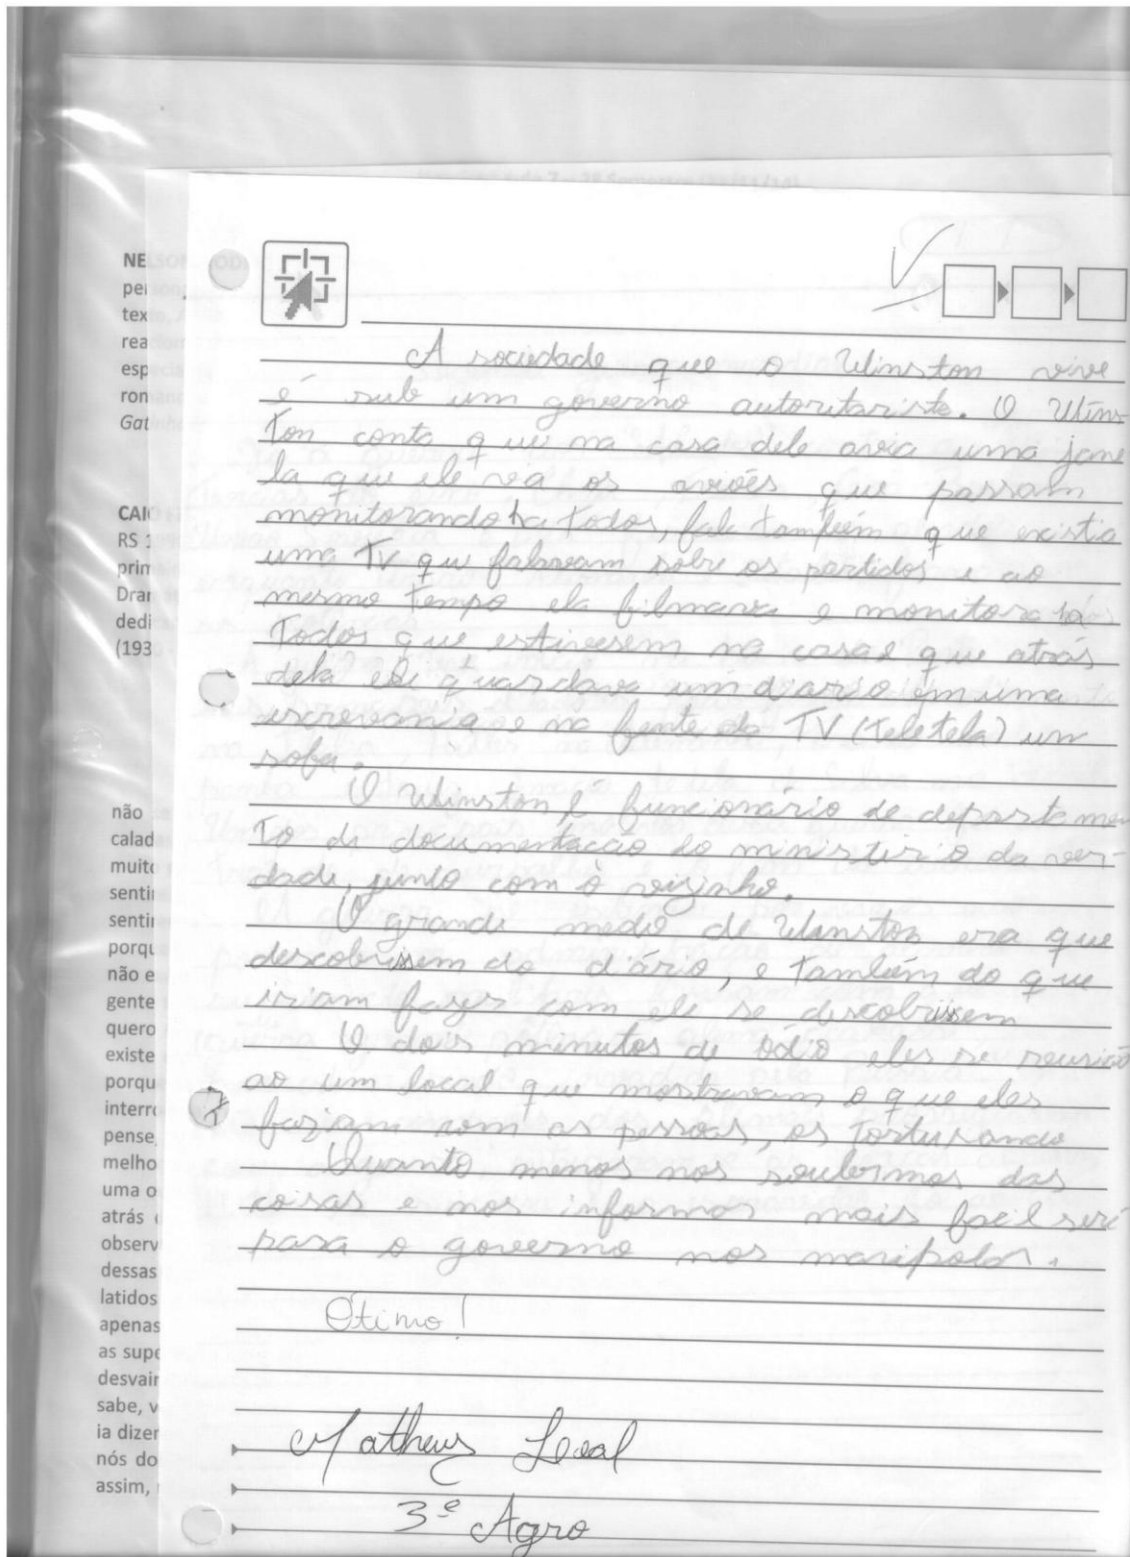 NE
per
tex
rea
espe
rom
Gat
CAIO
RS 1
prim
Dran
dedi
(193
não
calad
muito
senti
senti
porqu
não e
gente
quero
existe
porqu
interro
pense,
melho
uma o
atrás
observ
dessas
latidos
apenas
as supe
desvair
sabe, v
ia dizer
nós do
assim,
A sociedade que o Winston vive
é sub um governo autoritariste. O Wins
ton conta que na casa dele avia uma jane
la que ele via os aviões que passam
monitorando a todos, fale também que existia
uma TV que falavam sobre os partidos e ao
mesmo tempo ela filmava e monitora
todos que estivesem na casa e que atrás
dela ele guardava um diario em uma
escrevaninha e na frente da TV (teletela) um
sofa.
O Winston é funcionario de departamen
to de documentacao do ministerio da ver-
dade, junto com o vizinho.
O grande medo de Winston era que
descobrissem do diário, e também do que
iriam fazer com ele se descobrissem
O dois minutos de ódio eles se reunião
ao um local que mostravam o que eles
faziam com as pessoas, os torturando
Quanto menos nos soubermos das
coisas e nos informar mais facil será
para o governo nos manipolar.
Otimo!
Matheus Leal
3º Agro